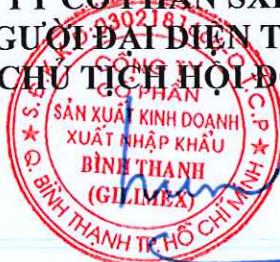 TY CỔ PHẦN SX
GƯỜI ĐẠI DIỆN T
CHỦ TỊCH HỘI Đ
CÔNG TY
CỔ PHẦN
SẢN XUẤT KINH DOANH
XUẤT NHẬP KHẨU
BÌNH THẠNH
(GILIMEX)
Q. BÌNH THẠNH TP. HỒ CHÍ MINH